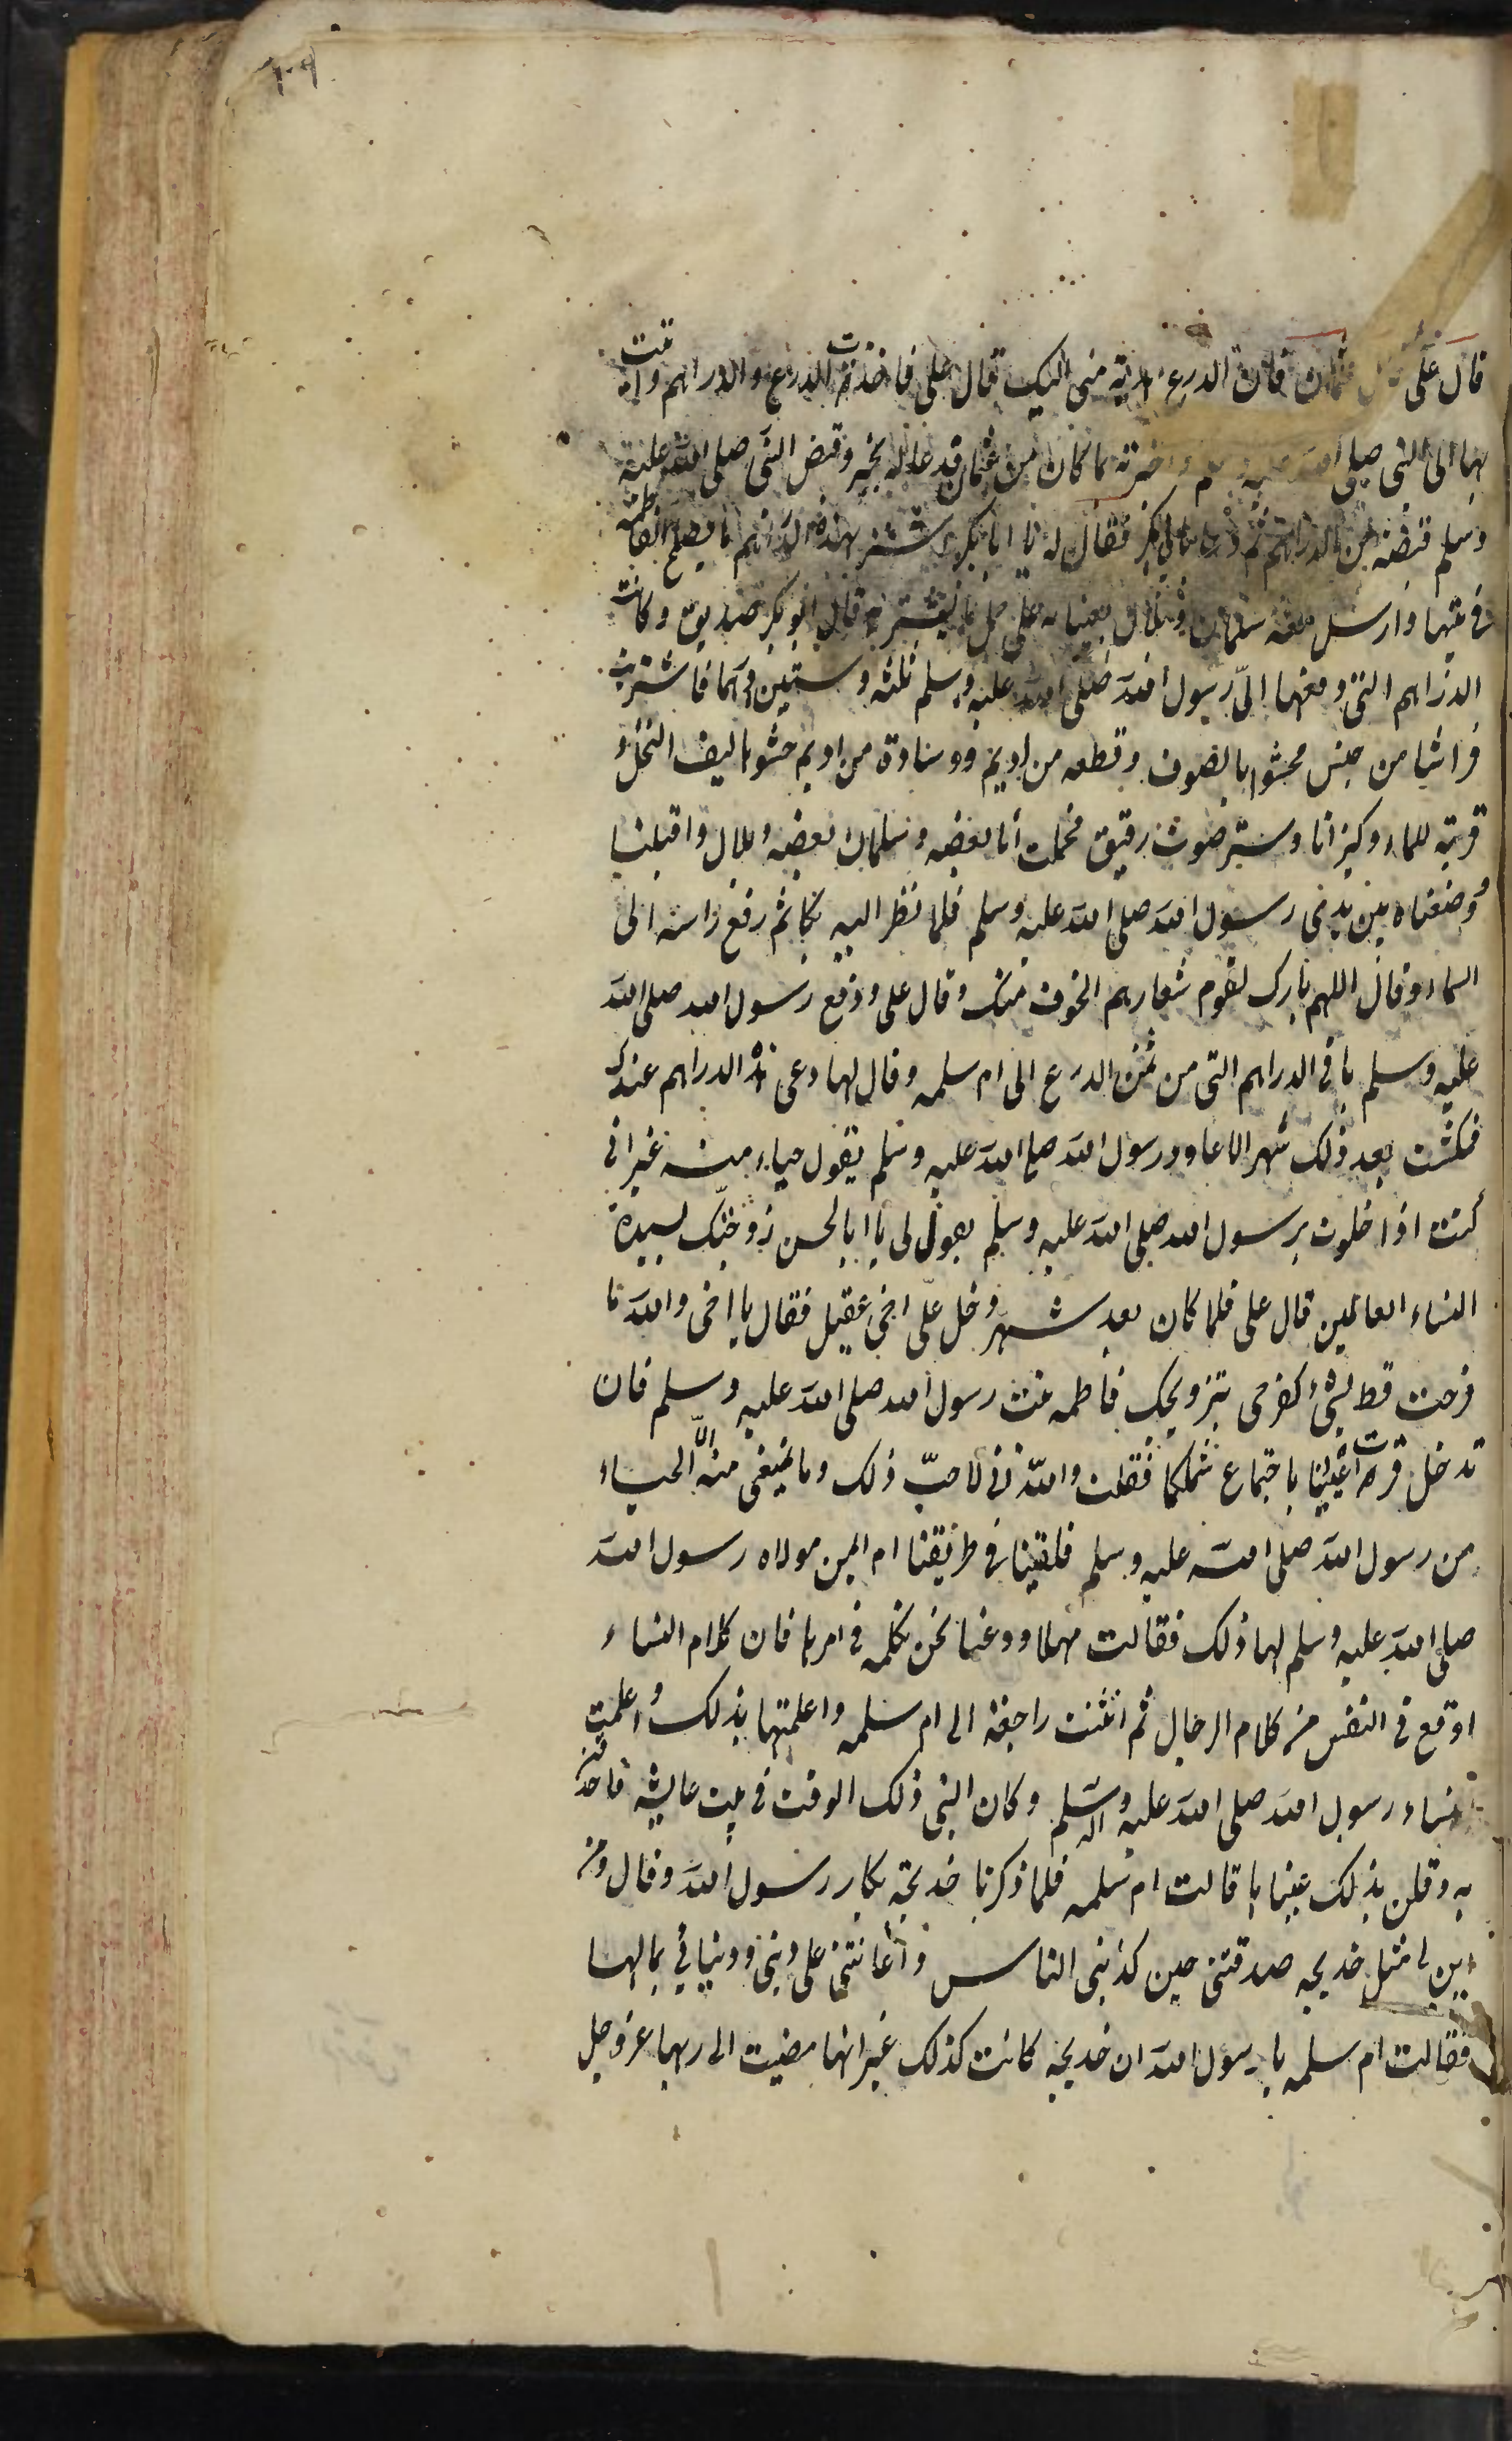 ١٠٩
قال على قال عثمان فان الدرع هدية منى اليك قال على فاخذت الدرع والدراهم واتيت
بها الى النبى صلى الله عليه وسلم واخبرته بما كان من عثمان فدعا له بخير وقبض النبى صلى الله عليه
وسلم قبضة من الدراهم ثم دعا بابى بكر فقال له يا ابا بكر اشتر بهذه الدراهم ما يصلح لفاطمة
فى بيتها وارسل معه سلمان وبلال يعيناه على حمل ما يشتريه قال ابو بكر وكانت
الدراهم التى دفعها الىّ رسول الله صلى الله عليه وسلم ثلثه وستين درهما فاشتريت
فراشا من خيش محشوا بالصوف وقطعه من اديم ووسادة من اديم حشوها ليف النخل و
قربة للماء وكيزانا وستر صوف رقيق فحملت انا بعضه وسلمان بعضه وبلال واقبلنا
فوضعناه بين يدى رسول الله صلى الله عليه وسلم فلما نظر اليه بكا ثم رفع راسه الى
السماء وقال اللهم بارك لقوم شعارهم الخوف منك وقال على ودفع رسول الله صلى الله
عليه وسلم باقى الدراهم التى من ثمن الدرع الى ام سلمه وقال لها دعى هذه الدراهم عندك
فمكثت بعد ذلك شهر الا عاود رسول الله صلى الله عليه وسلم بقول حياء منه غير انى
كنت اذا خلوت برسول الله صلى الله عليه وسلم يقول لى يا ابا الحسن زوجتك لسيدة
النساء العالمين قال على فلما كان بعد شهر دخل علىّ اخى عقيل فقال يا اخى والله ما
فرحت قط لشىء كفرحى بتزويجك فاطمه بنت رسول الله صلى الله عليه وسلم فان
تدخل قرت اعيننا باجتماع شملكما فقلت والله انى لاحبّ ذلك وما يمنعنى منه الّا الحياء
من رسول الله صلى الله عليه وسلم فلقينا فى طريقنا ام ايمن مولاه رسول الله
صلى الله عليه وسلم لها ذلك فقالت مهلا ودعنا نحن نكلمه فى امرها فان كلام النساء
اوقع فى النفس من كلام الرجال ثم انثنت راجعة الى ام سلمه واعلمتها بذلك واعلمت
نساء رسول الله صلى الله عليه واله وسلم وكان النبى ذلك الوقت فى بيت عايشه فاحدقن
به وقلن بذلك قالت ام سلمه فلما ذكرنا خديجة بكا رسول الله وقال ومن
اين لى مثل خديجه صدقتنى حين كذبنى الناس واعانتنى على دينى ودنيائى بمالها
فقالت ام سلمه يا رسول الله ان خديجه كانت كذلك غير انها مضيت الى ربها عز وجل